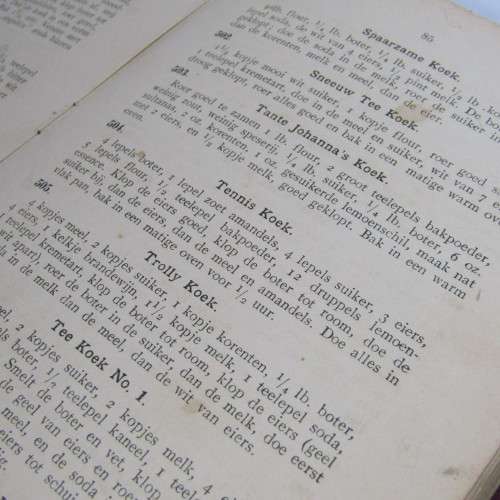 85
pdb. flour, 1/2 lb. boter, 1/4 lb. suiker, 1/4 lb.
Spaarzame Koek.
502.
1½ kopje mooi wit suiker, 1 kopje flour, roer goed
1 teelepel kremetart, doe in de meel en suiker, wit van 7 eiers
droog geklopt, roer alles goed en bak in een matige warm oven.
Sneeuw Tee Koek.
503.
Tante Johanna's Koek.
Roer goed te zamen 1 lb. flour, 2 groot teelepels bakpoeder,
weinig zout, weinig speserij, 1/4 lb. suiker, 1/4 lb. boter, 6 oz.
sultanas, 2 oz. korenten, 1 oz. gesuikerde lemoenschil, maak nat
met 2 eiers, en 1/2 kopje melk, goed geklopt. Bak in een warm
504.
Tennis Koek.
4 lepels boter, 1 lepel zoet amandels, 4 lepels suiker, 3 eiers,
5 lepels flour, 1/2 teelepel bakpoeder, 12 druppels lemoen-
essence. Klop de eiers goed, klop de boter tot room, doe de
suiker bij, dan de eiers, dan de meel en amandels. Doe alles in
vlak pan, bak in een matige oven voor 1/2 uur.
505.
Trolly Koek.
4 kopjes meel, 2 kopjes suiker, 1 kopje korenten, 1/4 lb. boter,
eiers, 1 kelkje brandewijn, 1½ kopje melk, 1 teelepel soda,
teelepel kremetart, klop de boter tot room, klop de eiers (geel
wit apart), roer de boter in de suiker, dan de melk, doe eerst
in de melk dan de meel, dan de wit van eiers.
Tee Koek No. 1.
2 kopjes suiker, 2 kopjes melk, 4
boter, 1/2 teelepel kaneel, 1 teelepel
Smelt de boter en vet, klop
de geel van eiers en roer
en de soda in de melk
eiers tot